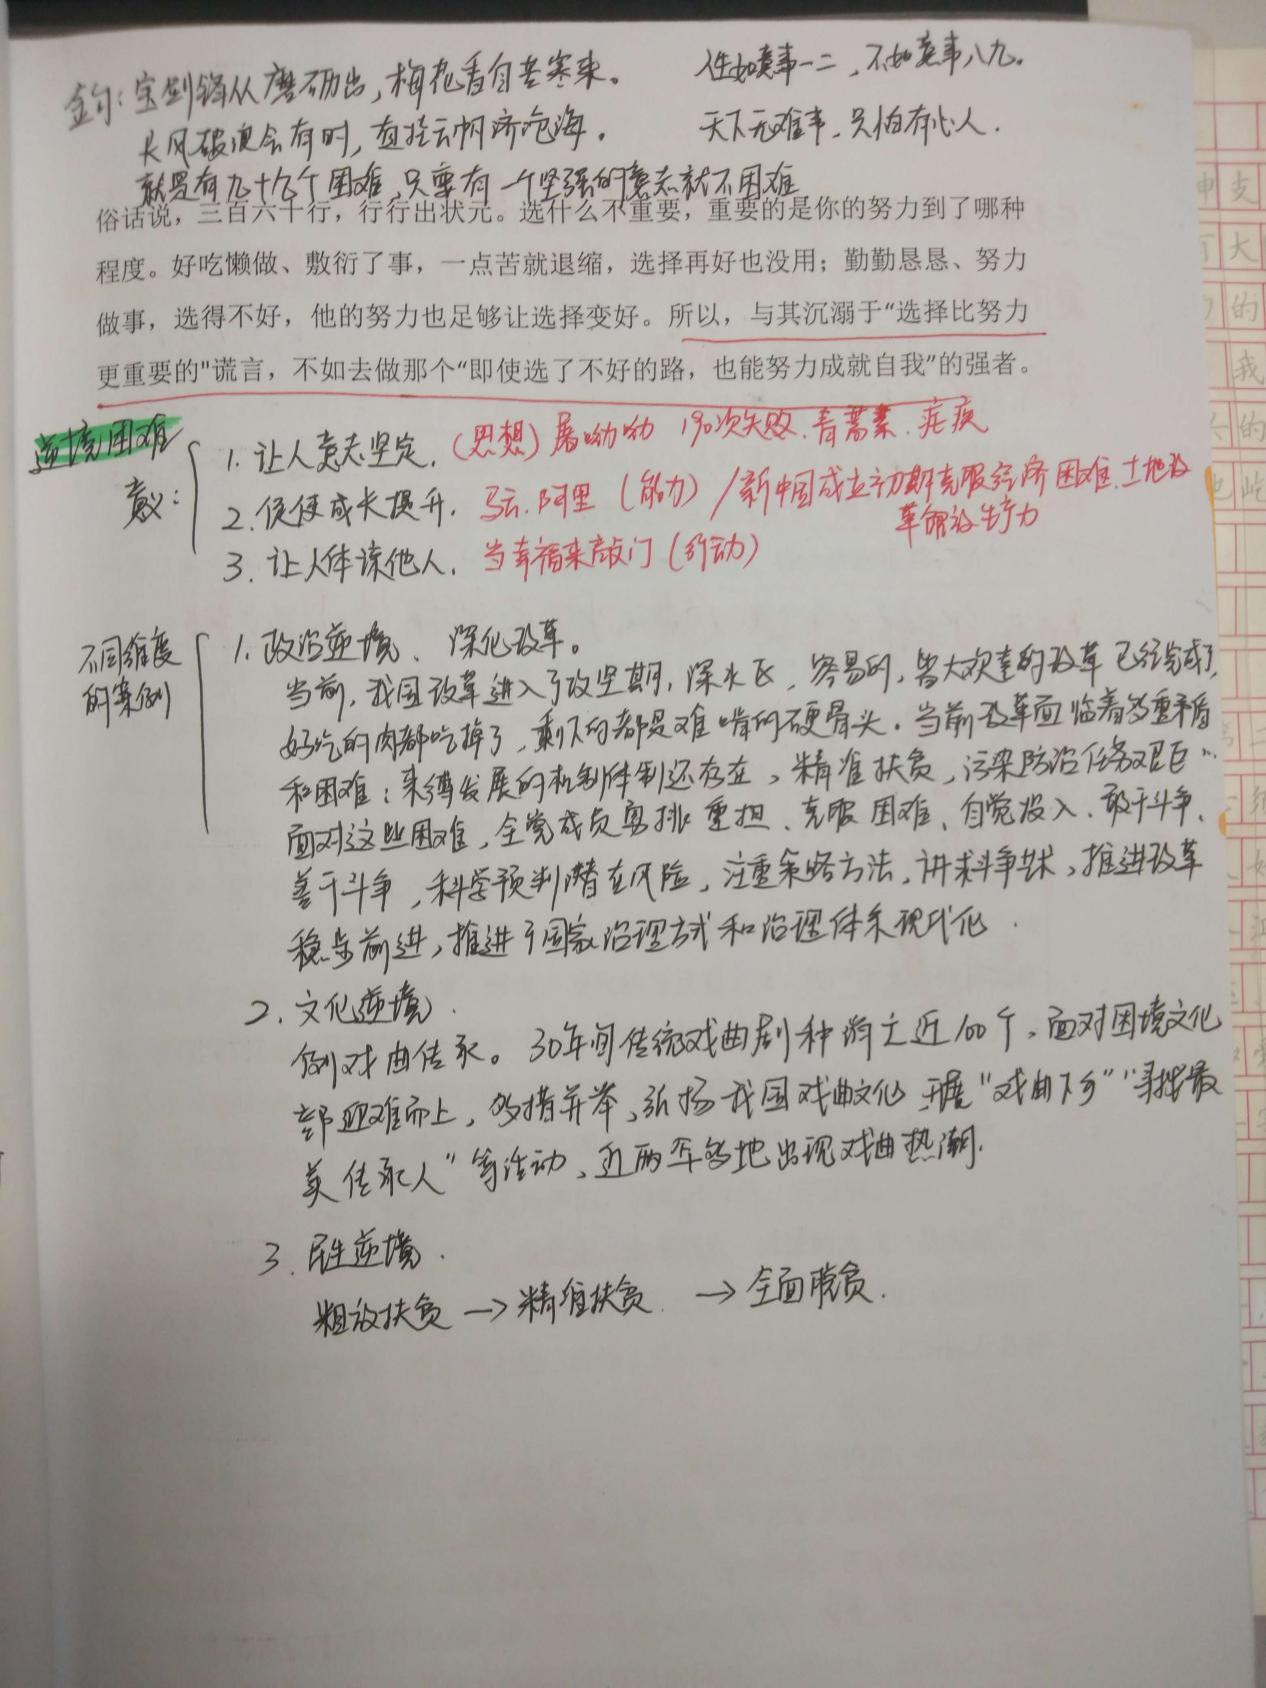 金句：宝剑锋从磨砺出，梅花香自苦寒来。 人生如意事一二，不如意事八九。
长风破浪会有时，直挂云帆济沧海。 天下无难事，只怕有心人．
就是有九十九个困难，只要有一个坚强的意志就不困难
俗话说，三百六十行，行行出状元。选什么不重要，重要的是你的努力到了哪种
程度。好吃懒做、敷衍了事，一点苦就退缩，选择再好也没用；勤勤恳恳、努力
做事，选得不好，他的努力也足够让选择变好。所以，与其沉溺于“选择比努力
更重要的"谎言，不如去做那个“即使选了不好的路，也能努力成就自我”的强者。
逆境困难
意义：
1. 让人意志坚定．（思想）屠呦呦 190次失败．青蒿素．疟疾
2. 促使成长提升． 马云．阿里（能力）/新中国成立初期克服经济困难．土地改
革解放生产力
3. 让人体谅他人． 当幸福来敲门（行动）
不同维度
的案例
1. 政治逆境、深化改革。
当前，我国改革进入了攻坚期，深水区，容易的，皆大欢喜的改革已经完成了，
好吃的肉都吃掉了，剩下的都是难啃的硬骨头．当前改革面临着多重矛盾
和困难：束缚发展的机制体制还存在，精准扶贫，污染防治任务艰巨…
面对这些困难，全党成员勇挑重担、克服困难、自觉投入、敢于斗争、
善于斗争，科学预判潜在风险，注重策略方法，讲求斗争艺术，推进改革
稳步前进，推进了国家治理方式和治理体系现代化．
2. 文化逆境．
例戏曲传承。30年间传统戏曲剧种消亡近100个，面对困境文化
部迎难而上，多措并举，弘扬我国戏曲文化 开展“戏曲下乡”“寻找最
美传承人”等活动，近两年多地出现戏曲热潮．
3. 民生逆境．
粗放扶贫 → 精准扶贫 → 全面脱贫．
中支
大
的
我
的